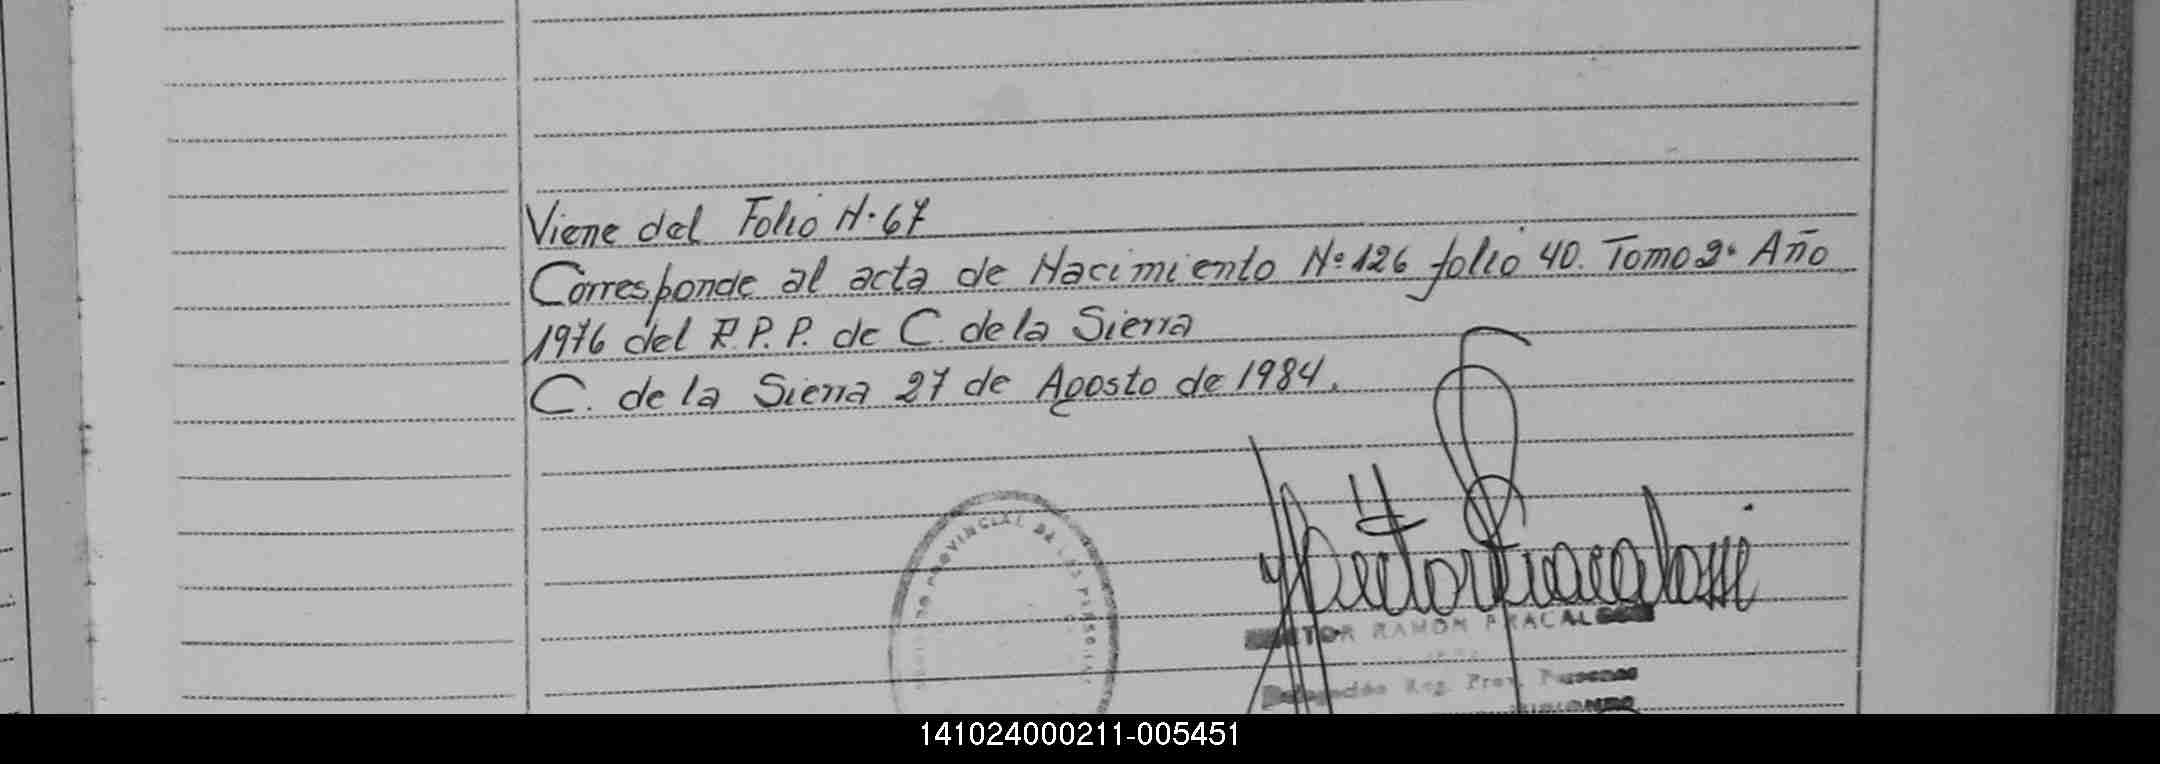 Viene del Folio N.67
Corresponde al acta de Nacimiento Nº126 folio 40. Tomo 2º Año
1976 del R.P.P. de C. de la Sierra
C. de la Sierra 27 de Agosto de 1984.
PROVINCIAL DE LAS PERSONAS
TOR RAMON FRACAL
Delegación Reg. Prov. Personas
141024000211-005451